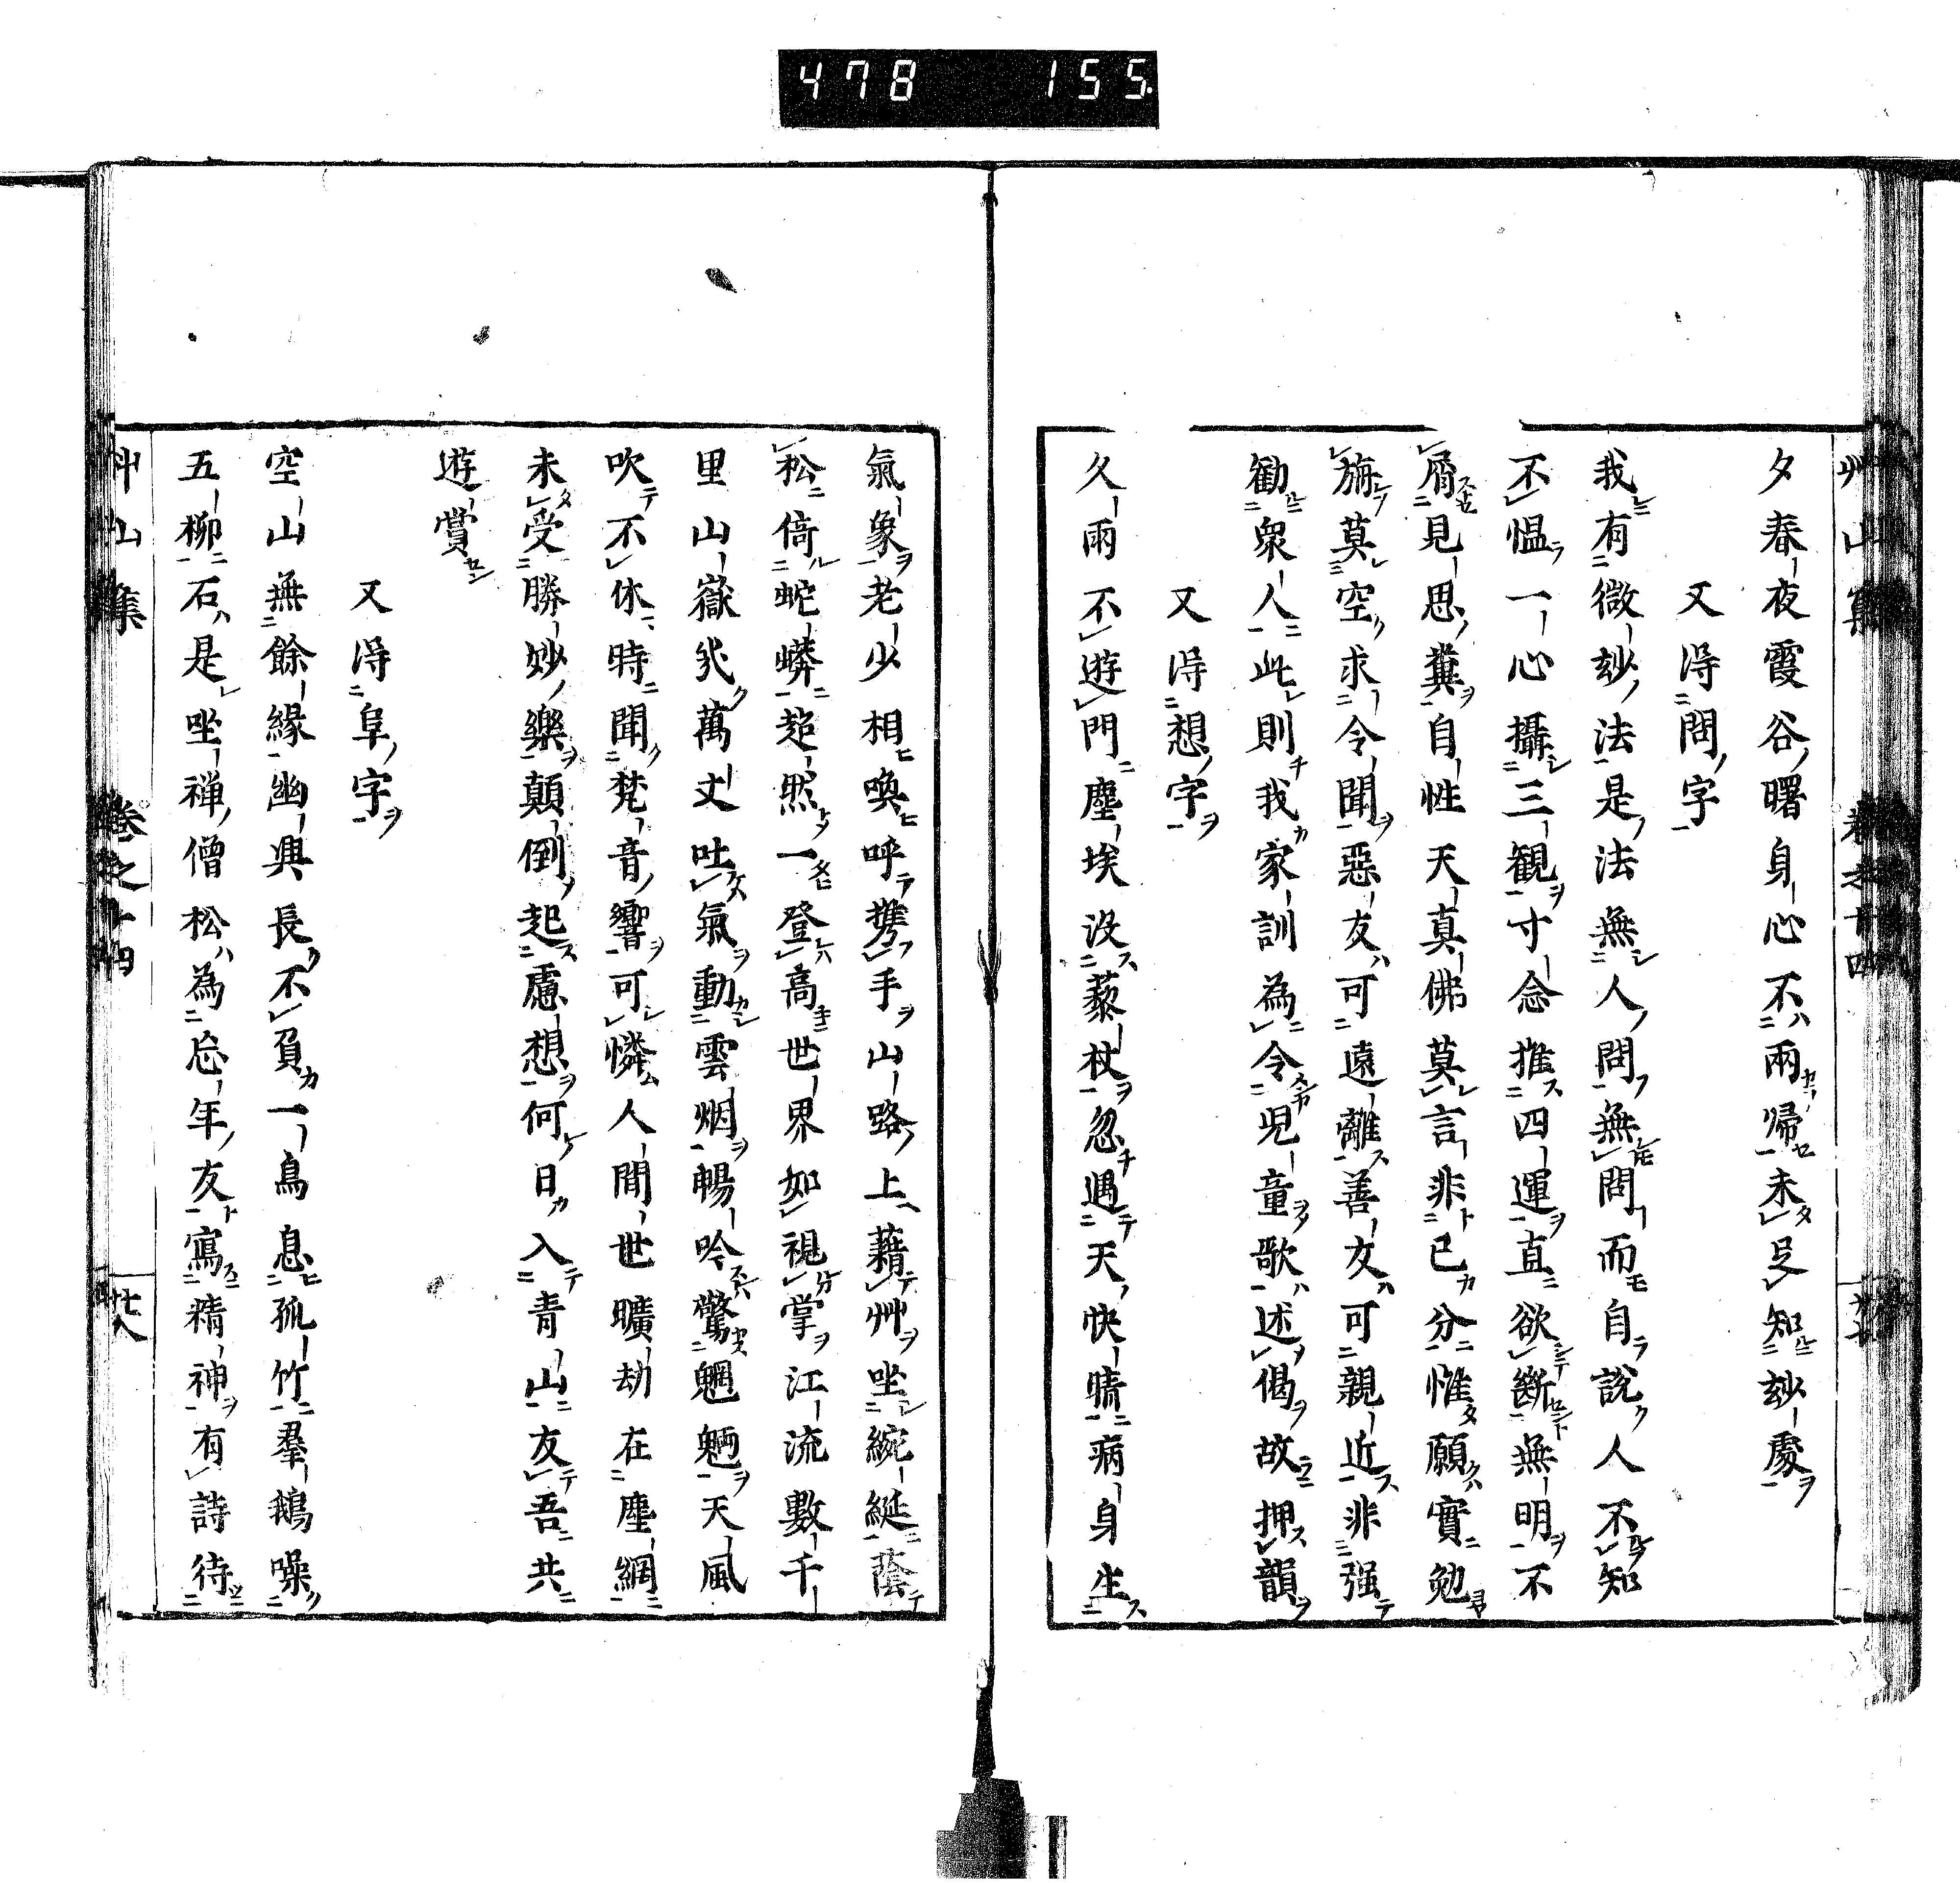 478 155.
艸山集 卷之十四 廿七
夕春夜霞谷曙身心不兩帰未足知玅處
又得問字
我有微玅法是法無人問無問而自說人不知
不愠一心攝三觀寸念推四運直欲斷無明不
屑見思糞自性天真佛莫言非已分惟願實勉
旃莫空求令聞惡友可遠離善友可親近非强
勸衆人此則我家訓為令児童歌述偈故押韻
又得想字
久雨不遊門塵埃没藜杖忽遇天快晴病身生
氣象老少相喚呼携手山路上藉艸坐綩綖蔭
松倚蛇蟒超然一登高世界如視掌江流數千
里山嶽幾萬丈吐氣動雲烟暢吟驚魍魎天風
吹不休時聞梵音響可憐人間世曠劫在塵網
未受勝妙樂顛倒起慮想何日入青山友吾共
遊賞
又得阜字
空山無餘緣幽興長不負一鳥息孤竹羣鵝噪
五柳石是坐禅僧松為忘年友寫精神有詩待
艸山集 卷之十四 廿八